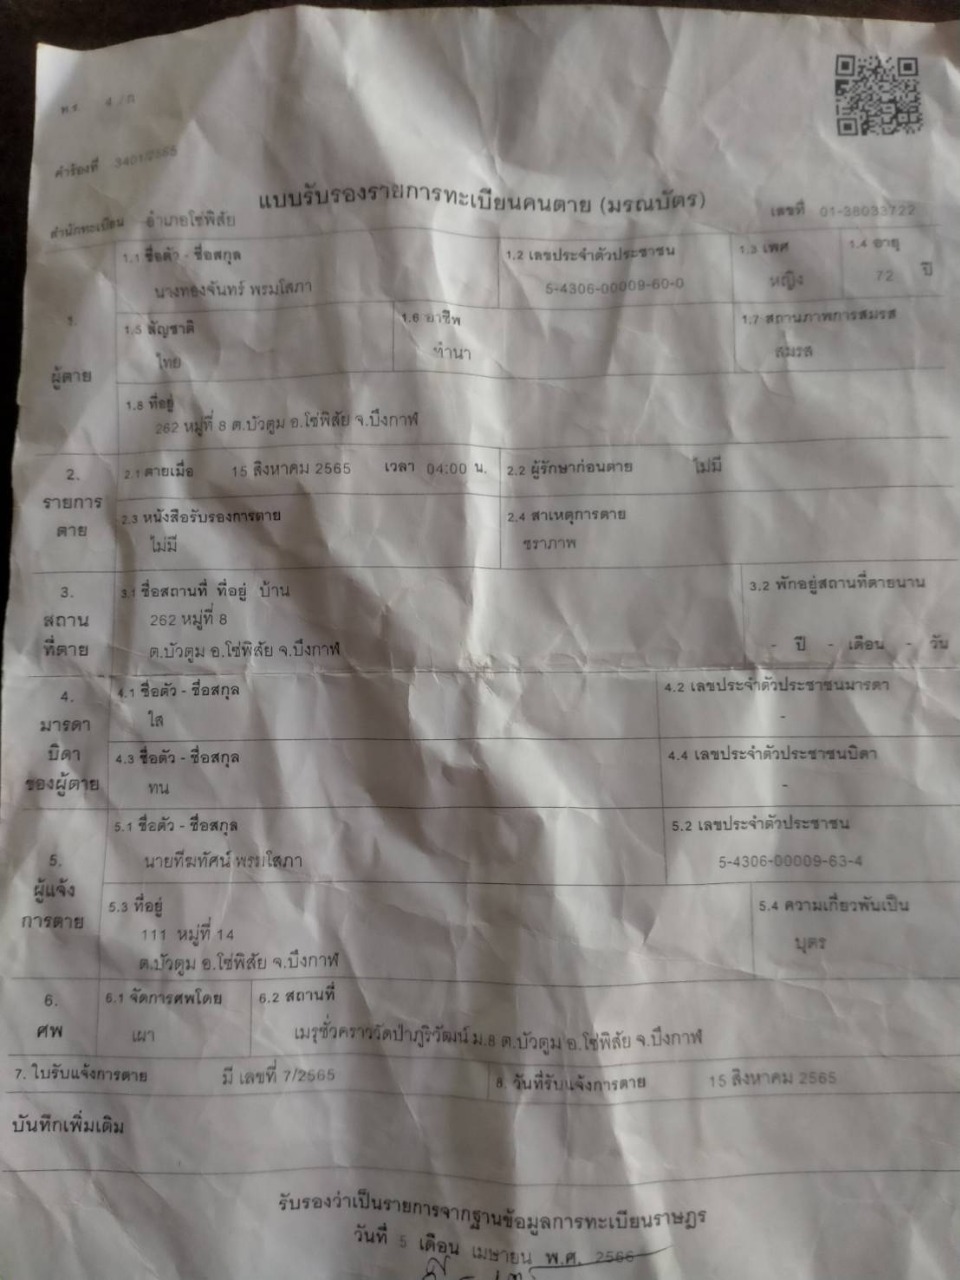 ท.ร. 4/ก
คำร้องที่ 3401/2565
แบบรับรองรายการทะเบียนคนตาย (มรณบัตร)
สำนักทะเบียน อำเภอโซ่พิสัย เลขที่ 01-38033722
1. ผู้ตาย
1.1 ชื่อตัว - ชื่อสกุล
นางทองจันทร์ พรมโสภา
1.2 เลขประจำตัวประชาชน
5-4306-00009-60-0
1.3 เพศ
หญิง
1.4 อายุ
72 ปี
1.5 สัญชาติ
ไทย
1.6 อาชีพ
ทำนา
1.7 สถานภาพการสมรส
สมรส
1.8 ที่อยู่
262 หมู่ที่ 8 ต.บัวตูม อ.โซ่พิสัย จ.บึงกาฬ
2. รายการตาย
2.1 ตายเมื่อ 15 สิงหาคม 2565 เวลา 04:00 น.
2.2 ผู้รักษาก่อนตาย ไม่มี
2.3 หนังสือรับรองการตาย
ไม่มี
2.4 สาเหตุการตาย
ชราภาพ
3. สถานที่ตาย
3.1 ชื่อสถานที่ ที่อยู่ บ้าน
262 หมู่ที่ 8
ต.บัวตูม อ.โซ่พิสัย จ.บึงกาฬ
3.2 พักอยู่สถานที่ตายนาน
- ปี - เดือน - วัน
4. มารดา บิดา ของผู้ตาย
4.1 ชื่อตัว - ชื่อสกุล
ใส
4.2 เลขประจำตัวประชาชนมารดา
-
4.3 ชื่อตัว - ชื่อสกุล
ทน
4.4 เลขประจำตัวประชาชนบิดา
-
5. ผู้แจ้งการตาย
5.1 ชื่อตัว - ชื่อสกุล
นายทีฆทัศน์ พรมโสภา
5.2 เลขประจำตัวประชาชน
5-4306-00009-63-4
5.3 ที่อยู่
111 หมู่ที่ 14
ต.บัวตูม อ.โซ่พิสัย จ.บึงกาฬ
5.4 ความเกี่ยวพันเป็น
บุตร
6. ศพ
6.1 จัดการศพโดย
เผา
6.2 สถานที่
เมรุชั่วคราววัดป่าภูริวัฒน์ ม.8 ต.บัวตูม อ.โซ่พิสัย จ.บึงกาฬ
7. ใบรับแจ้งการตาย มี เลขที่ 7/2565
8. วันที่รับแจ้งการตาย 15 สิงหาคม 2565
บันทึกเพิ่มเติม
รับรองว่าเป็นรายการจากฐานข้อมูลการทะเบียนราษฎร
วันที่ 5 เดือน เมษายน พ.ศ. 2566